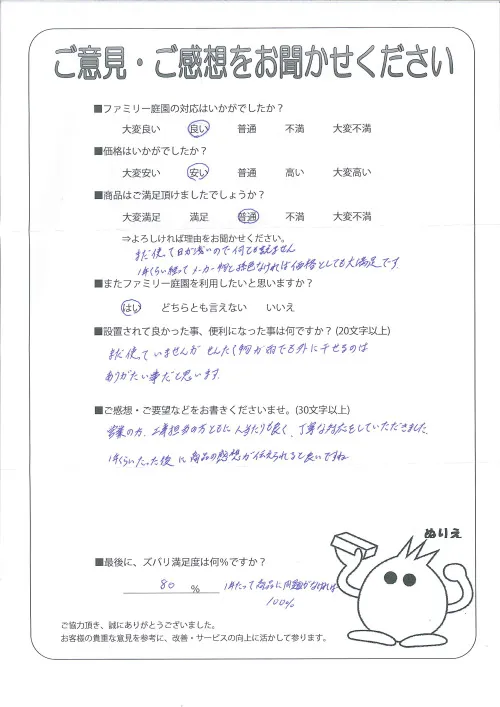 ご意見・ご感想をお聞かせください
■ファミリー庭園の対応はいかがでしたか？
大変良い 良い 普通 不満 大変不満
■価格はいかがでしたか？
大変安い 安い 普通 高い 大変高い
■商品はご満足頂けましたでしょうか？
大変満足 満足 普通 不満 大変不満
⇒よろしければ理由をお聞かせください。
まだ使って日が浅いので何とも言えません
1年くらい経ってメーカー物と遜色なければ価格としても大満足です
■またファミリー庭園を利用したいと思いますか？
はい どちらとも言えない いいえ
■設置されて良かった事、便利になった事は何ですか？(20文字以上)
まだ使っていませんが せんたく物が雨でも外に干せるのは
ありがたい事だと思います.
■ご感想・ご要望などをお書きくださいませ。(30文字以上)
営業の方、工事担当の方ともに人当たりも良く、丁寧な対応をしていただきました.
1年くらいたった後に商品の感想が伝えられると良いですね
ぬりえ
■最後に、ズバリ満足度は何％ですか？
80 % 1年たって商品に問題がなければ
100%
ご協力頂き、誠にありがとうございました。
お客様の貴重な意見を参考に、改善・サービスの向上に活かして参ります。